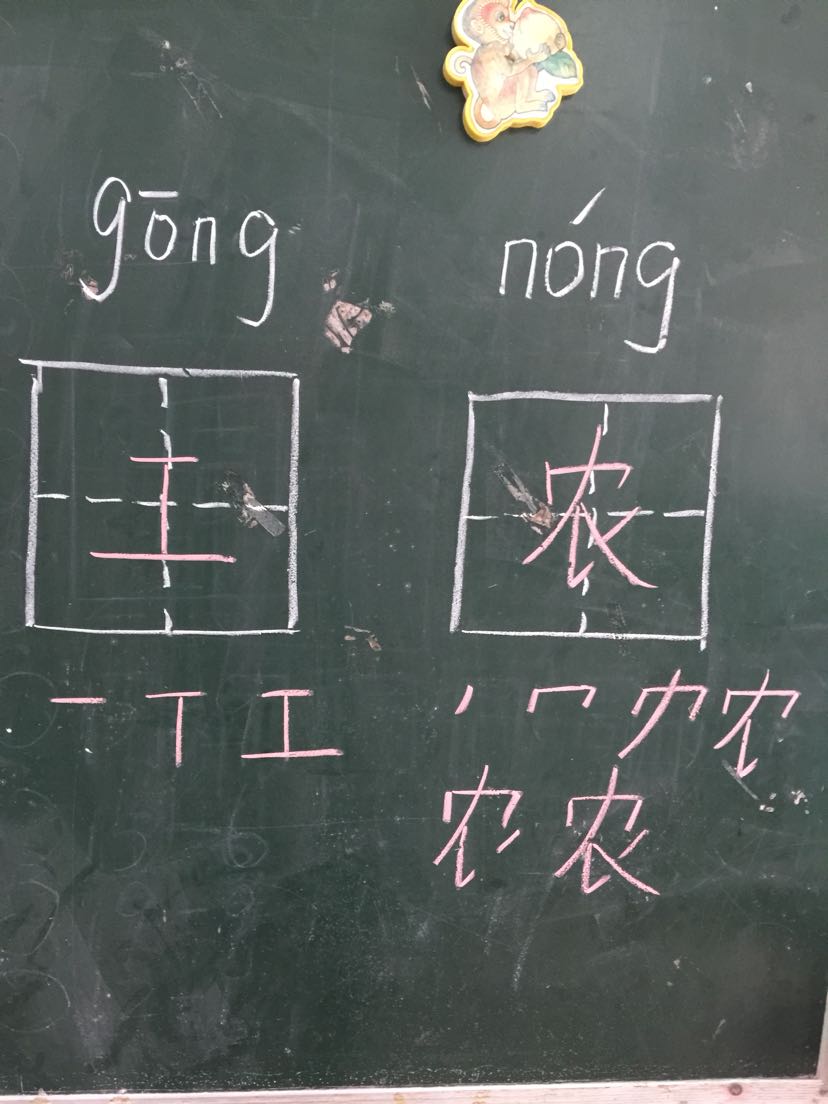 gōng nóng
工 农
一 丅 工 丿 冖 农
农 农